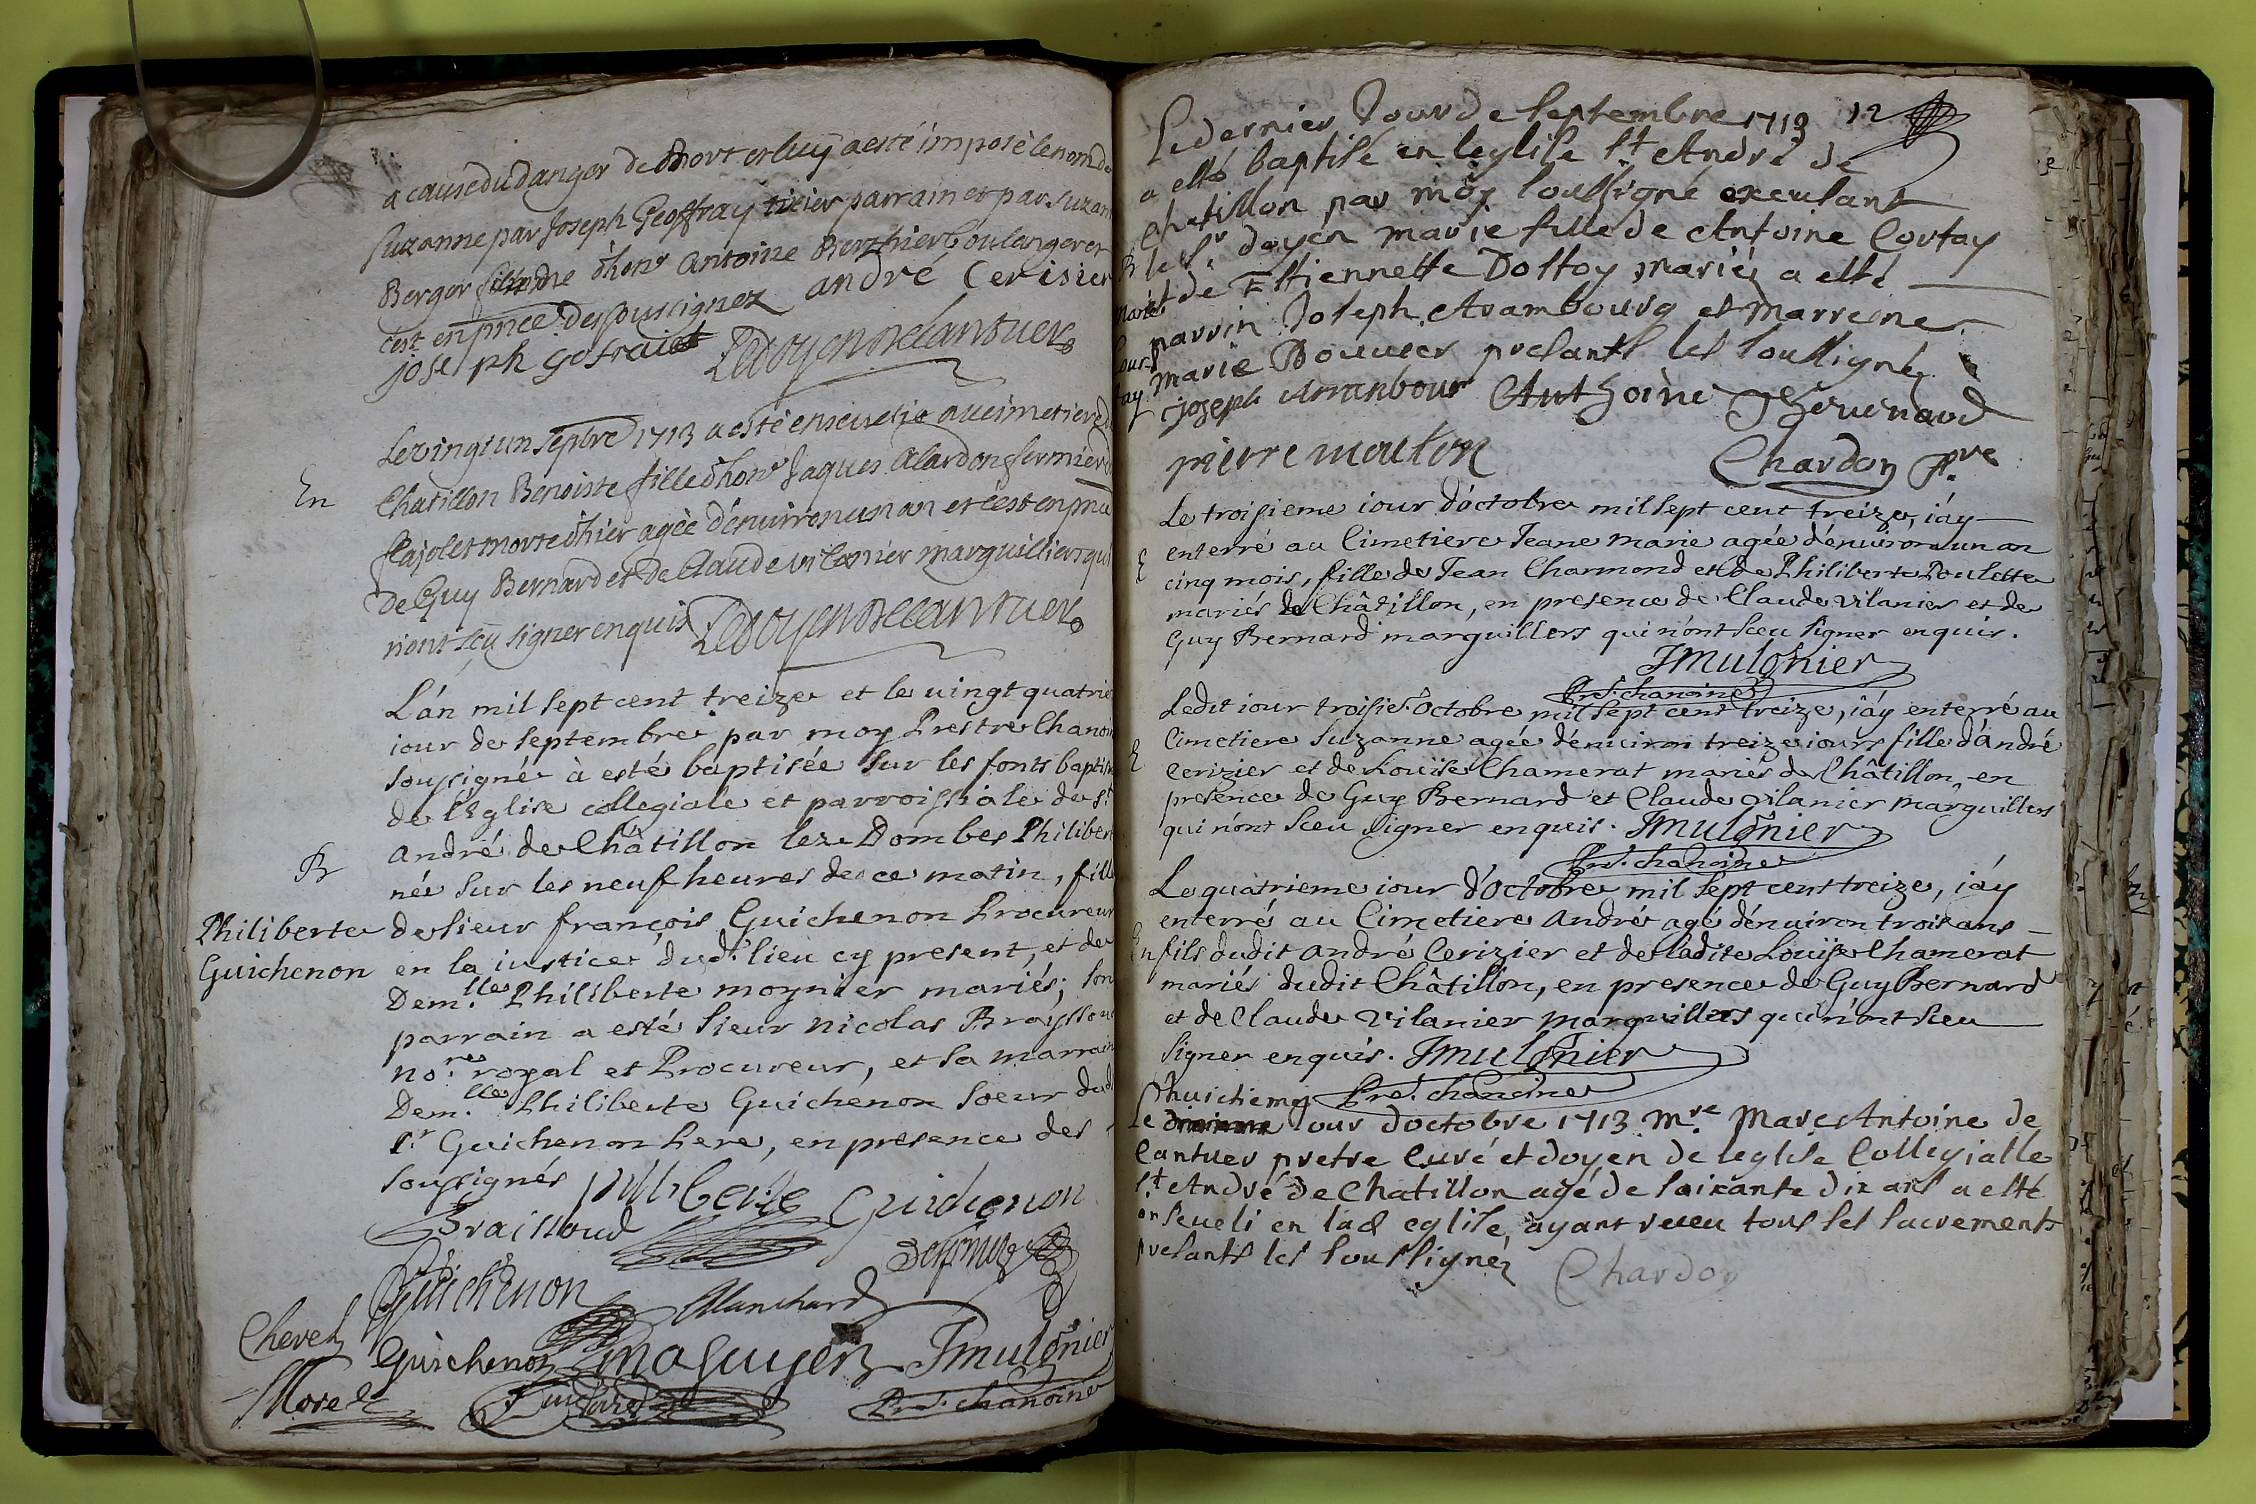 a cause du danger de Mort et luy a esté imposé le nom de
Suzanne par Joseph Geoffray parrain et par Suzanne
Berger dhonr Antoine Berthier boulanger et
c'est en pnce des soussignez andré Cerisier
joseph gofraict Ledoyen Decantuer
Le vingtun Septbre 1713 a esté ensevelie au cimetiere de
En
Chatillon Benoiste fille dhonr Jaques Alardon fermier
flajolet morte dhier agée d'environ un an et c'est en pnce
de Guy Bernard et de Claude vilanier marguilliers qui
n'ont sçu signer enquis Ledoyen Decantuer
L'án mil sept cent treize et le vingt quatrie
iour de septembre par moy Prestre Chanoin
sousigné à esté baptisée sur les fonts baptis
de l'Eglise collegiale et parroissiale de St
André de Châtillon lez Dombes Philiber
B
née sur les neuf heures de ce matin, fille
Philiberte
Guichenon
de sieur françois Guichenon Procureur
en la iustice dud. lieu cy present, et de
Dem.lle Philiberte moynier mariés; son
parrain a esté sieur nicolas Brayssoud
no.re royal et Procureur, et sa marrain
Dem.lle Philiberte Guichenon soeur dud
Sr Guichenon Pere, en presence des
sousignés philiberte Guichenon
Braissoud
Guichenon Blanchard
Cheved Guichenon maguyen Jmulonier
Morel Pre. chanoine
Le dernier Jour de Septembre 1713 12
a esté baptisé en leglise St André de
Chatillon par moy soussigné exculant
B le Sr doyen marie fille de Antoine Cortay
Marie et de Estiennette Dottoy mariés a esté
parrin Joseph Arambourg et marreine
marie Bouvier presants les soussigné
joseph Arranbour Anthoine Thevenard
pierre mouton
Chardon Pre
Le troisieme iour d'octobre mil sept cent treize, i'ay
E
enterré au Cimetiere Jeane marie agée d'environ un an
cinq mois, fille de Jean Charmond et de Philiberte Poulette
mariés de Châtillon, en presence de Claude vilanier et de
Guy Bernard marguillers qui n'ont sceu signer enquis.
Jmulonier
Pre. chanoine
Ledit iour troisie. Octobre mil sept cent treize, i'ay enterré au
E
Cimetiere Suzanne agée d'environ treize iours fille d'André
Cerizier et de Louise Chamerat mariés de Châtillon, en
presence de Guy Bernard et Claude vilanier marguillers
qui n'ont sceu signer enquis. Jmulonier
Pre. chanoine
Le quatrieme iour d'Octobre mil sept cent treize, i'ay
enterré au Cimetiere André agé d'environ trois ans
En fils dudit André Cerizier et de ladite Louise Chamerat
mariés dudit Châtillon, en presence de Guy Bernard
et de Claude vilanier marguillers qui n'ont sceu
signer enquis. Jmulonier
Pre. chanoine
huictieme
Le Jour doctobre 1713 Mre Marc Antoine de
Cantuer pretre Curé et doyen de leglise Collegialle
St André de Chatillon agé de soixante dix ans a esté
enseveli en lad eglise, ayant receu tous les sacrements
presants les soussignéz Chardon